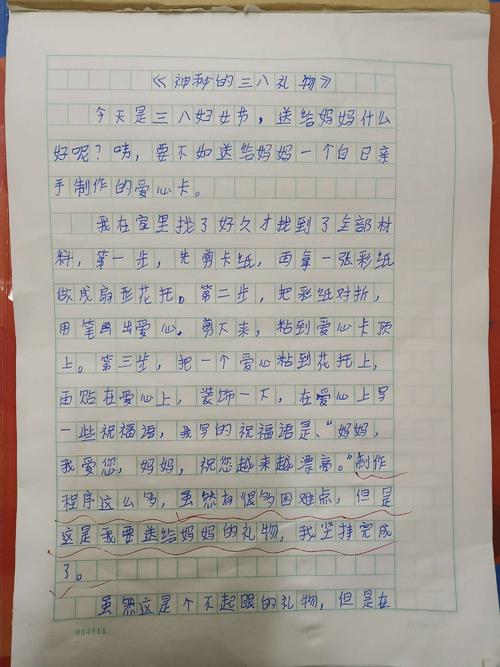 《神秘的三八礼物》
今天是三八妇女节，送给妈妈什么
好呢？唷，要不如送给妈妈一个自己亲
手制作的爱心卡。
我在室里找了好久才找到了全部材
料，第一步，先剪卡纸，再拿一张彩纸
做成扇形花托。第二步，把彩纸对折，
用笔画出爱心，剪下来，粘到爱心卡顶
上。第三步，把一个爱心粘到花托上，
再贴在爱心上，装饰一下，在爱心上写
一些祝福语，我写的祝福语是、“妈妈，
我爱您，妈妈，祝您越来越漂亮。”制作
程序这么多，虽然有很多困难点，但是
这是我要送给妈妈的礼物，我坚持完成
了。
虽然这是个不起眼的礼物，但是在
004111